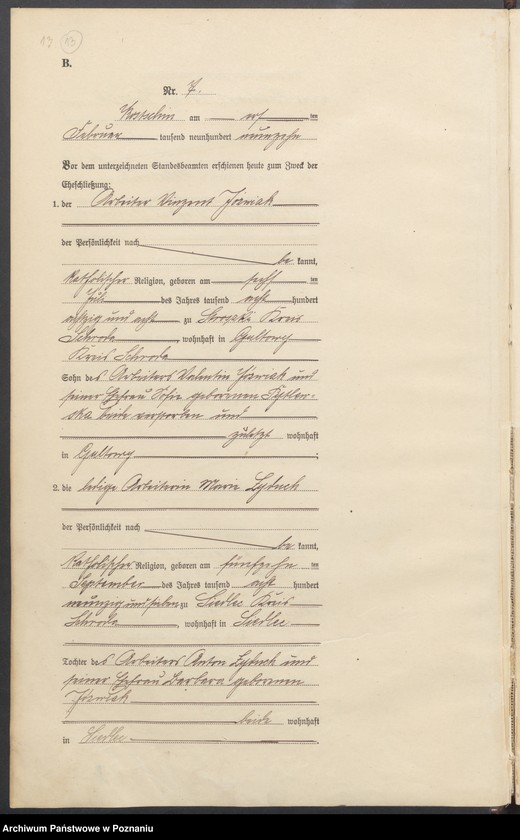 13 13
B.
Nr. 7.
Kostschin am elf ten
Februar tausend neunhundert neunzehn
Vor dem unterzeichneten Standesbeamten erschienen heute zum Zweck der
Eheschließung:
1. der Arbeiter Vinzent Jóźwiak
der Persönlichkeit nach
be kannt,
katholischer Religion, geboren am sechs ten
Juli des Jahres tausend acht hundert
achtzig und acht zu Kreis
Schroda, wohnhaft in Gultowy
Kreis Schroda
Sohn des Arbeiters Valentin Jóźwiak und
seiner Ehefrau Sofie geborenen
beide verstorben und
zuletzt wohnhaft
in Gultowy ;
2. die ledige Arbeiterin Marie
der Persönlichkeit nach
be kannt,
katholischer Religion, geboren am fünfzehn ten
September des Jahres tausend acht hundert
neunzig und sieben zu Siedlec Kreis
Schroda, wohnhaft in Siedlec
Tochter des Arbeiters Anton und
seiner Ehefrau Barbara geborenen
Jóźwiak
beide wohnhaft
in Siedlec .
Archiwum Państwowe w Poznaniu
szukajwarchiwach.gov.pl